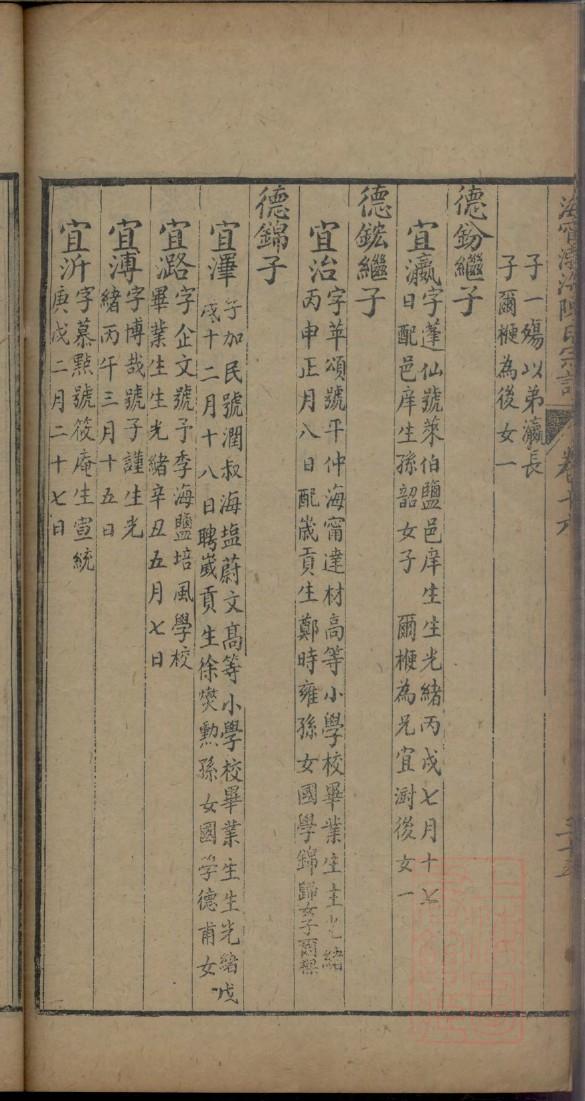 海甯渤海陳氏宗譜 卷十六
子一殤以弟瀛長
子爾楩為後女一
德鈖繼子
宜瀛
字蓬仙號萊伯鹽邑庠生生光緒丙戌七月十六
日配邑庠生孫韶女子 爾楩為兄宜澍後女一
德鋐繼子
宜治
字苹頌號平仲海甯達材高等小學校畢業生生光緒
丙申正月八日配歲貢生鄭時雍孫女國學錦歸女子爾樑
德錦子
宜澤
字加民號潤叔海盐蔚文高等小學校畢業生生光緒戊
戌十二月十八日聘歲貢生徐爕勲孫女國學德甫女
宜潞
字企文號予季海鹽培風學校
畢業生生光緒辛丑五月七日
宜溥
字博哉號子謹生光
緒丙午三月十五日
宜沂
字慕點號筱庵生宣統
庚戌二月二十七日